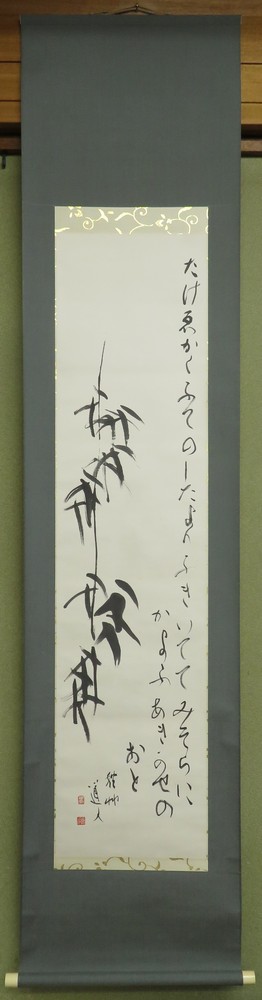 たけゑかくふてのしたよりふきいててみそらに
かよふあきかせの
おと
秋艸
道人